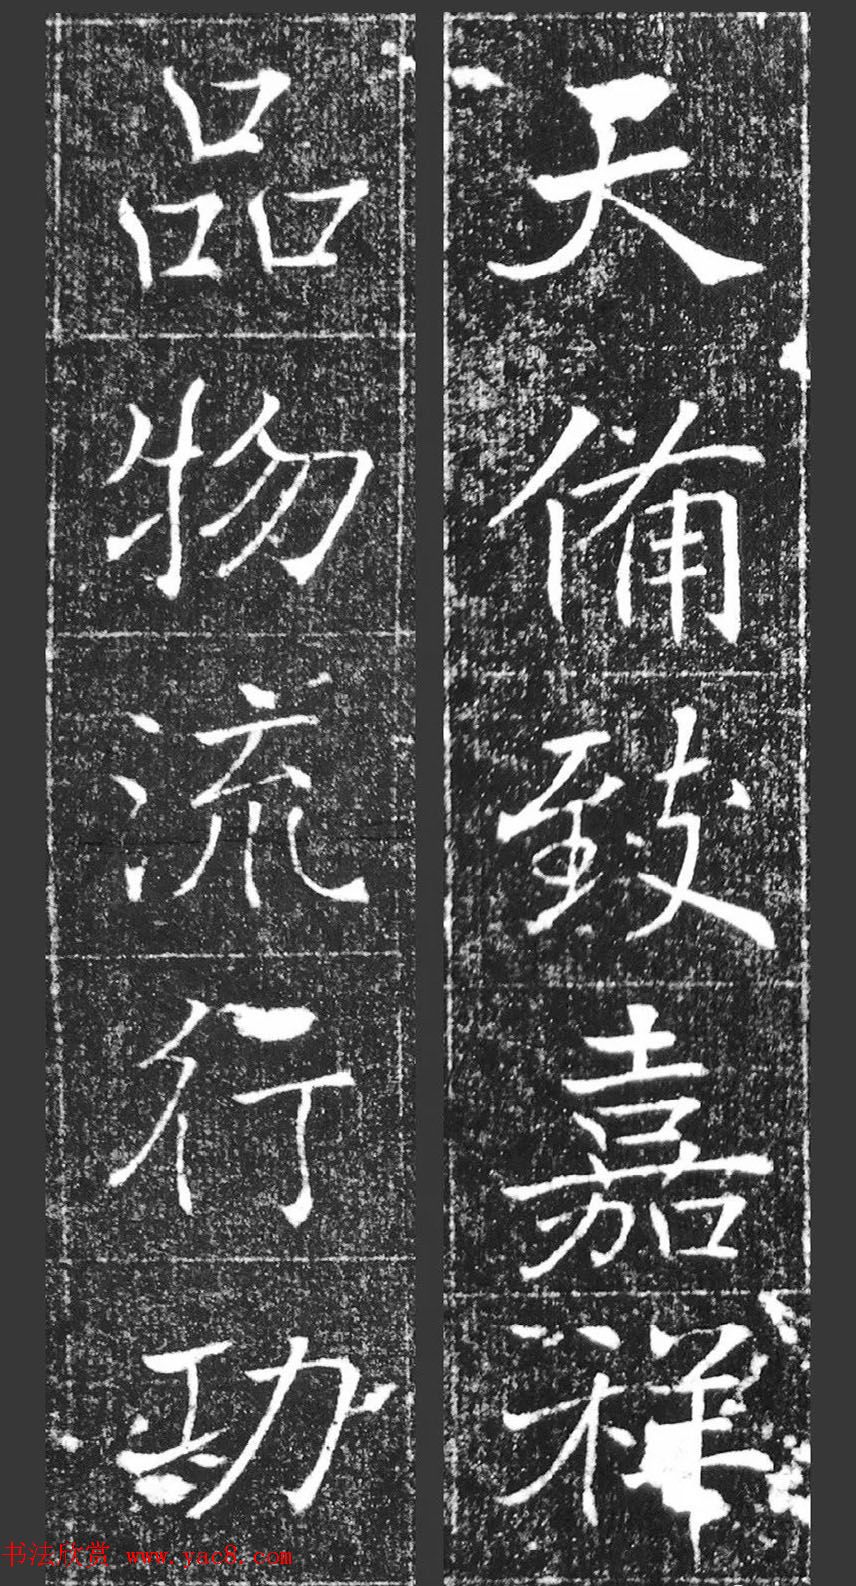 天備致嘉祥
品物流行功
书法欣赏 www.yac8.com